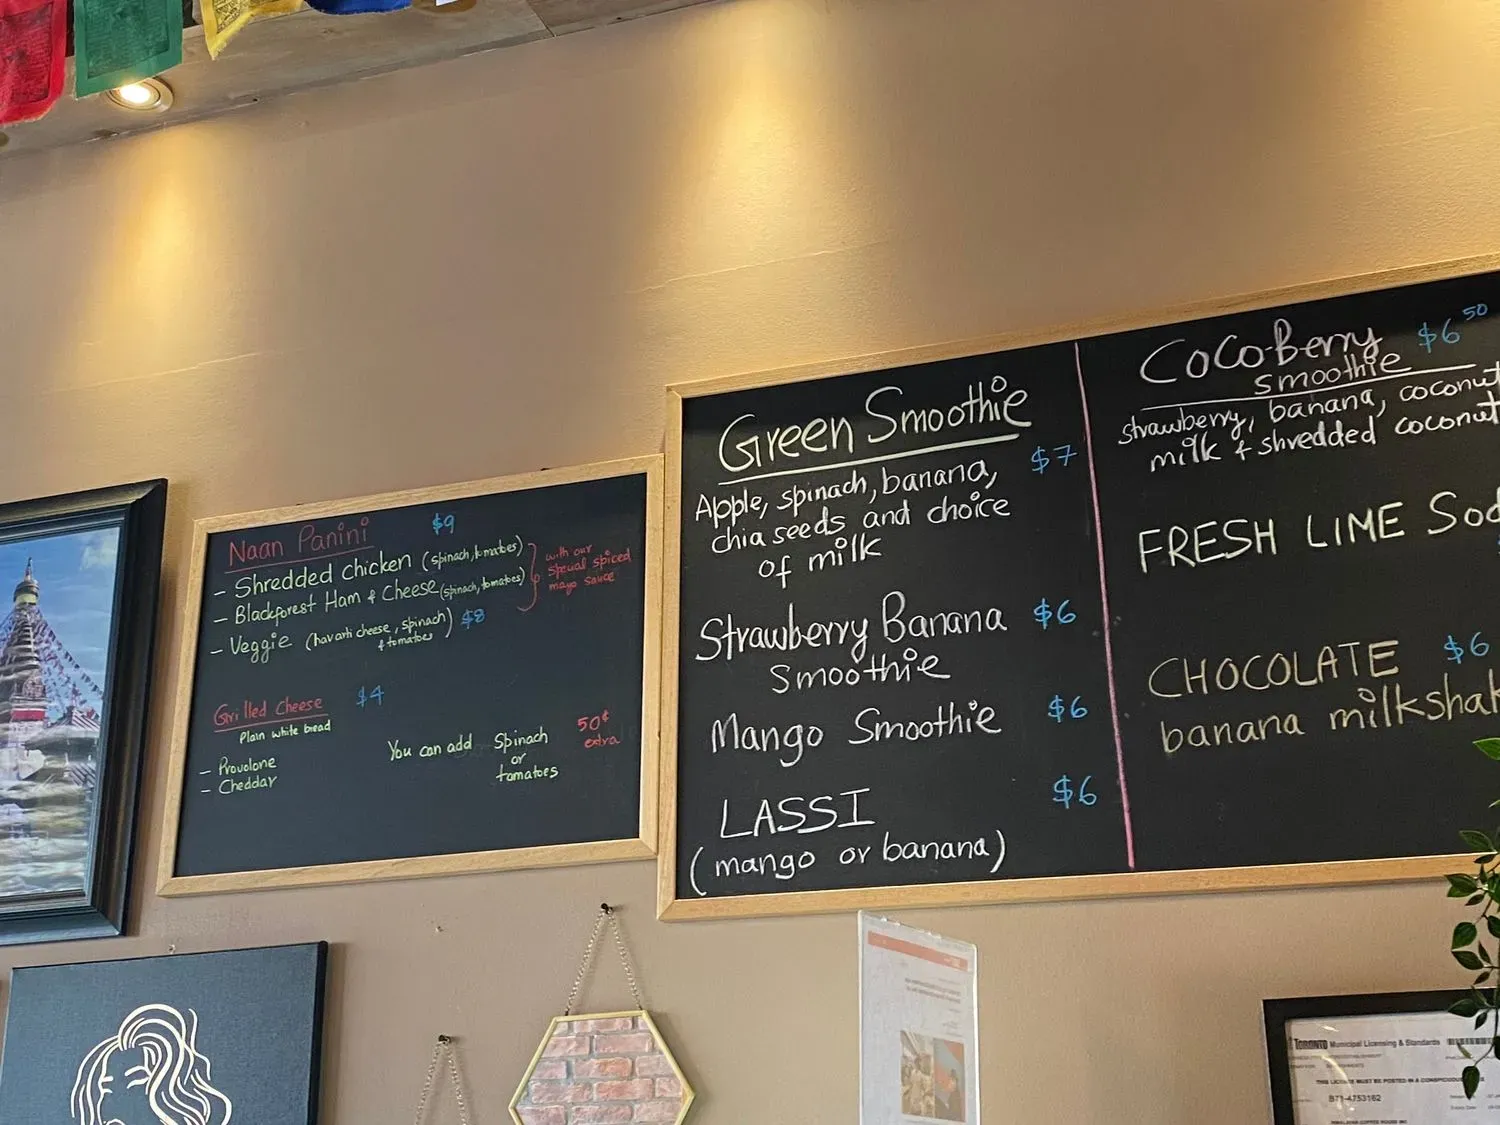 Naan Panini $9
- Shredded chicken (spinach, tomatoes)
- Blackforest Ham & Cheese (spinach, tomatoes)
with our
special spiced
mayo sauce
- Veggie (havarti cheese, spinach & tomatoes) $8
Grilled Cheese $4
Plain white bread
- Provolone
- Cheddar
You can add spinach
or
tomatoes
50¢
extra
Green Smoothie
$7
Apple, spinach, banana,
chia seeds and choice
of milk
Strawberry Banana $6
Smoothie
Mango Smoothie $6
LASSI $6
(mango or banana)
CoCo-Berry $6 50
smoothie
strawberry, banana, coconut
milk & shredded coconut
FRESH LIME Sod
CHOCOLATE $6
banana milkshak
TORONTO Municipal Licensing & Standards
THIS LICENCE MUST BE POSTED IN A CONSPICUOUS
B71-4753162